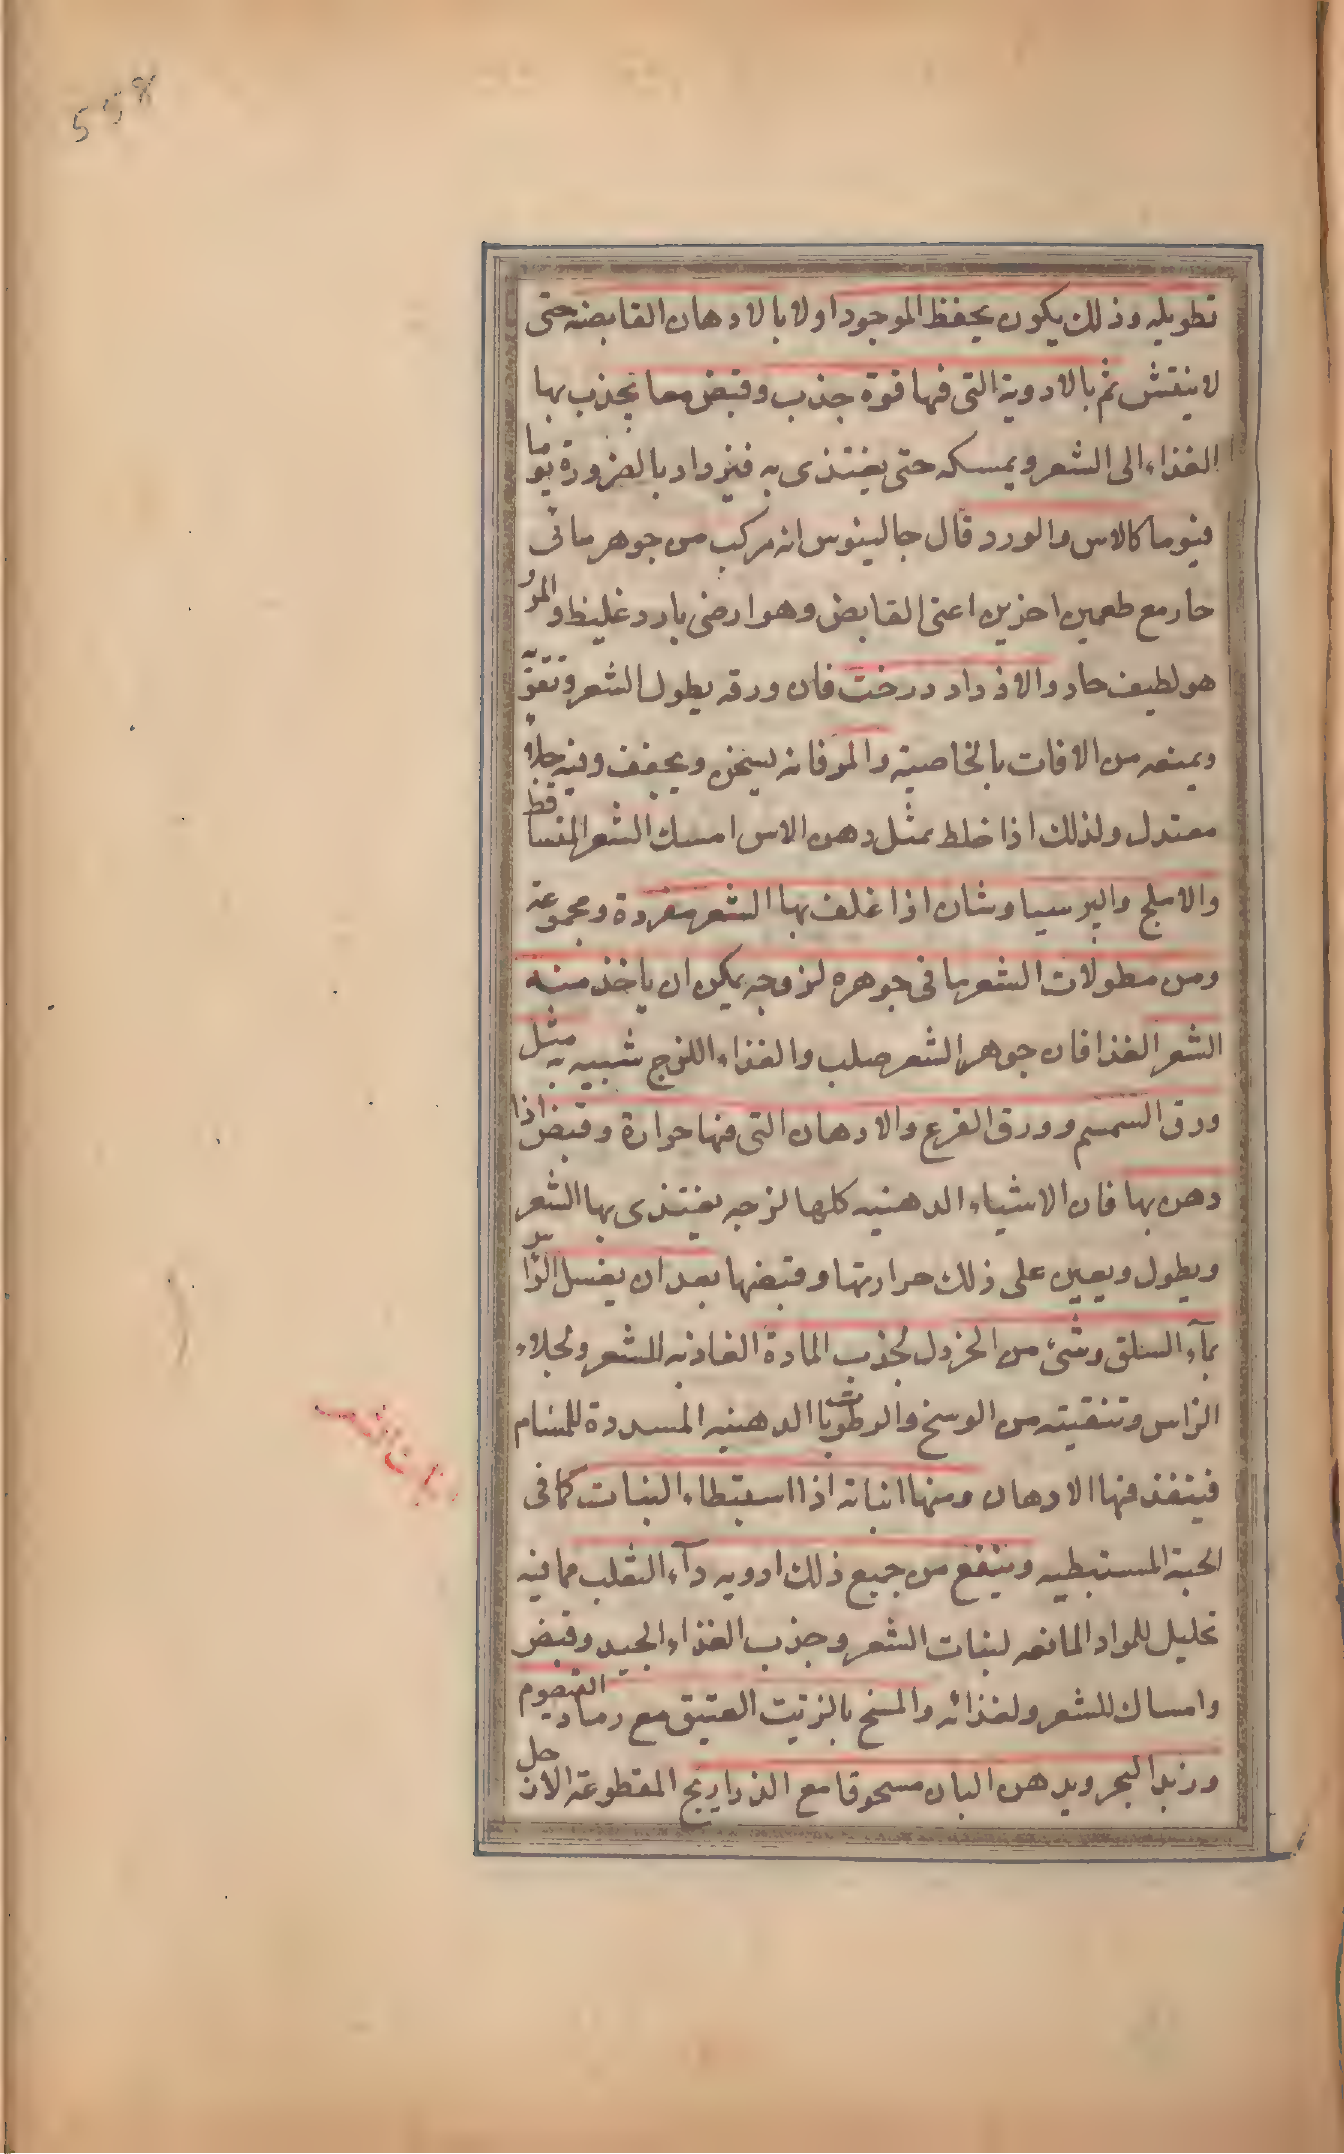 558
تطويله وذلك يكون بحفظ الموجود اولا بالادهان القابضة حتى
لا ينقش ثم بالادوية التى فيها قوة جذب وقبض معا يجذب بها
الغذاء الى الشعر ويمسكه حتى يغتذى به فيزداد بالضرورة يوما
فيوما كالاس والورد قال جالينوس انه مركب من جوهر مائى
حار مع طعمين اخرين اعنى القابض وهو ارضى بارد غليظ والمر و
هو لطيف حار والازاددرخت فان ورقه يطول الشعر وتقويه
ويمنعه من الافات بالخاصية والمر فانه يسخن ويجفف وفيه جلاء
معتدل ولذلك اذا خلط بمثل دهن الاس امسك الشعر المتساقط
والاملج والبرسياوشان اذا غلف بها الشعر مفردة ومجموعة
ومن مطولات الشعر ما فى جوهره لزوجه يمكن ان ياخذ منه
الشعر الغذا فان جوهر الشعر صلب والغذاء اللزج شبيه به مثل
ورق السمسم وورق القرع والادهان التى فيها حرارة وقبض اذا
دهن بها فان الاشياء الدهنيه كلها لزجه يغتذى بها الشعر
ويطول ويعين على ذلك حرارتها وقبضها بعد ان يغسل الراس
بمآء السلق وشئ من الخردل لجذب المادة الغاذيه للشعر ولجلاء
الراس وتنقيته من الوسخ والرطوبات الدهنيه المسددة للمسام
فيتنفذ فيها الادهان ومنها انباته اذا استبطاء النبات كما فى
اللحية المستبطيه وينفع من جميع ذلك ادويه دآء الثعلب مما فيه
تحليل للمواد المانعه لنبات الشعر وجذب الغذاء الجيد وقبض
وامساك للشعر ولغذائه والمسخ بالزيت العتيق مع رماد القيصوم
وزبد البحر وبدهن البان مسحوقا مع الذراريح المقطوعة الارجل
انبات الشعر